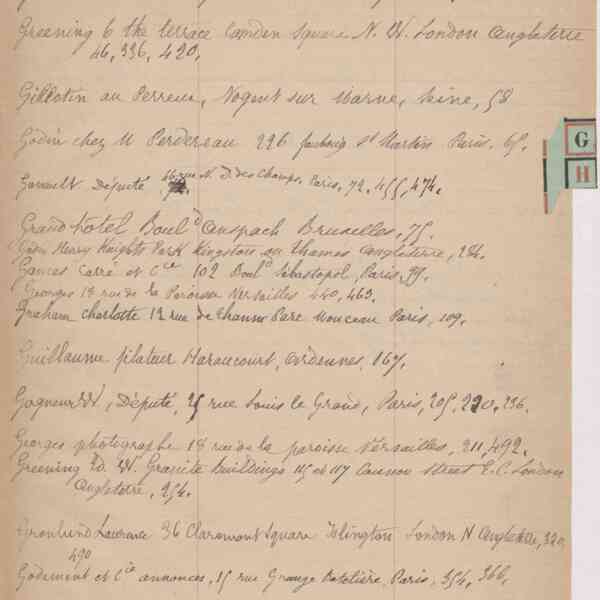 Greening 6 the terrace Camden Square N. W. London Angleterre
46, 336, 420,
Gillotin au Perreux, Nogent sur Marne, Seine, 58
Godin chez M Perdereau 226 faubourg St Martin Paris. 65.
Député 66 rue N. D. des Champs, Paris, 72, 455, 474.
Grand hotel Boul.d Anspach Bruxelles, 75.
Henry Knights Park Kingston on thames Angleterre, 284.
Carré et Cie 102 Boul.d Sébastopol, Paris, 99.
Georges 18 rue de la Paroisse Versailles 440, 463.
Graham charlotte 12 rue de Parc Monceau Paris, 109.
Guillaume plateur Haraucourt, Ardennes, 167.
Gagneur W, Député, 25 rue Louis le Grand, Paris, 205, 220, 236.
Georges photographe 18 rue de la paroisse Versailles, 211, 492.
Greening Ed. W. Granite buildings 115 et 117 Cannon Street E. C. London
Angleterre, 254.
Gronlund Laurence 36 Claremont Square Islington London N Angleterre, 320,
490
Godement et Cie annonces, 15 rue Grange Batelière Paris, 354, 366,
G
H